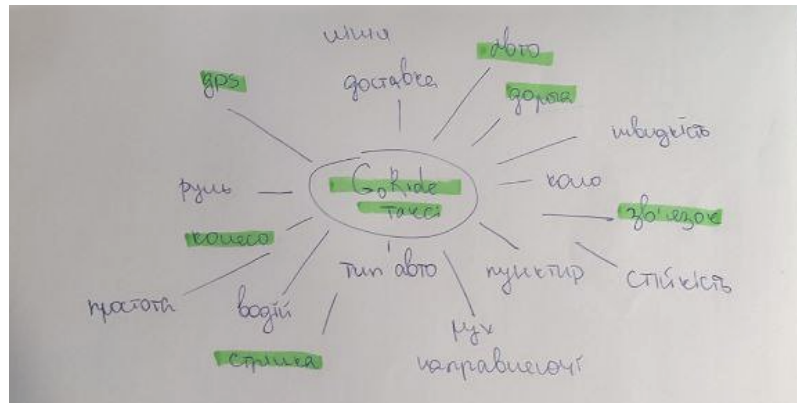 лінія
авто
gps
доставка
дорога
швидкість
руль
GoRide
таксі
коло
зв'язок
колесо
тип авто
пунктир
стійкість
простота
водій
стрілка
рух
направляючі